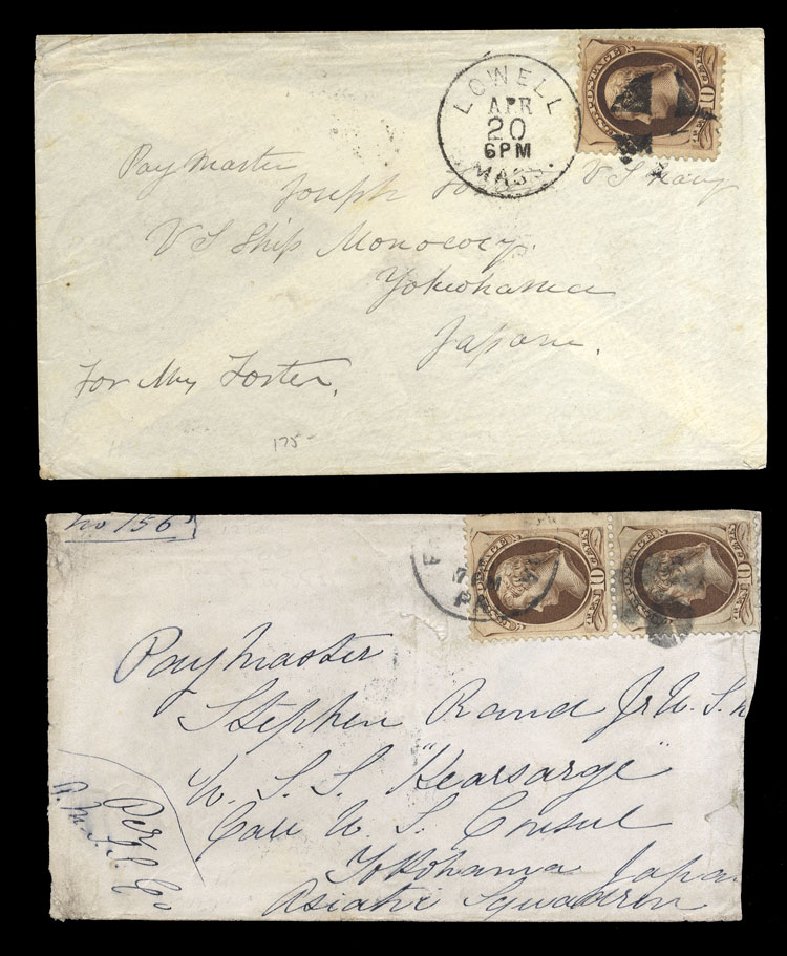 LOWELL
APR
20
6PM
MASS.
Pay Master
Joseph U S Navy
U S Ship Monococy.
Yokohama
Japan.
For My Foster.
175-
No 156
Pay Master
Stephen Rand Jr U. S. N
U. S. S. "Kearsarge"
Care U. S. Consul
Yokohama Japa
Asiatic Squadron
Per
P. M. S. S. Co
POSTAGE
10
POSTAGE
10
10
PA